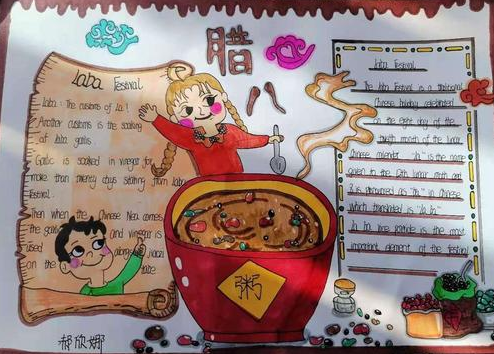 腊
八
Laba Festival
Laba: The customs of La!
Another customs is the soaking
of laba garlic.
Garlic is soaked in vinegar for
more than twenty days starting from Laba
Festival.
Then when the Chinese New comes
the garlic and vinegar is
used alongside jiaozi
on the table
粥
Laba Festival
The Laba Festival is a traditional
Chinese holiday celebrated
on the eight day of the
twelfth month of the lunar
Chinese calendar. "La" is the name
given to the 12th lunar month and
8 is pronounced as "ba" in Chinese
which translated is "La ba."
La ba rice porridge is the most
important element of the festival